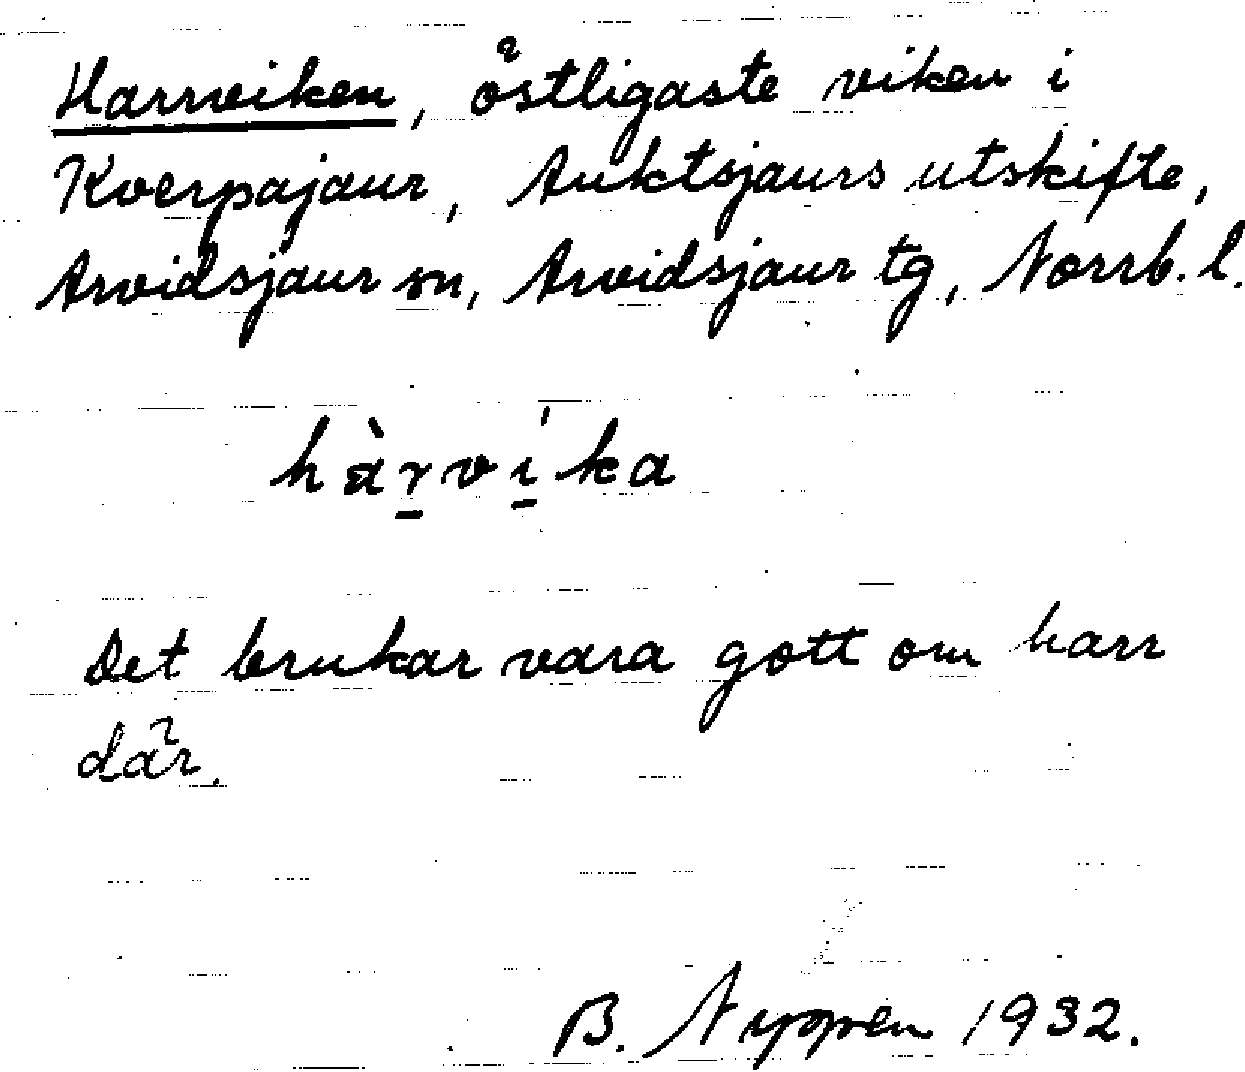 Harrviken, östligaste viken i
Kverpajaur, Auktsjaurs utskifte,
Arvidsjaur sn, Arvidsjaur tg, Norrb. l.
hàr̲vi̲̍ka
Det brukar vara gott om harr
där.
B. Nyppén 1932.